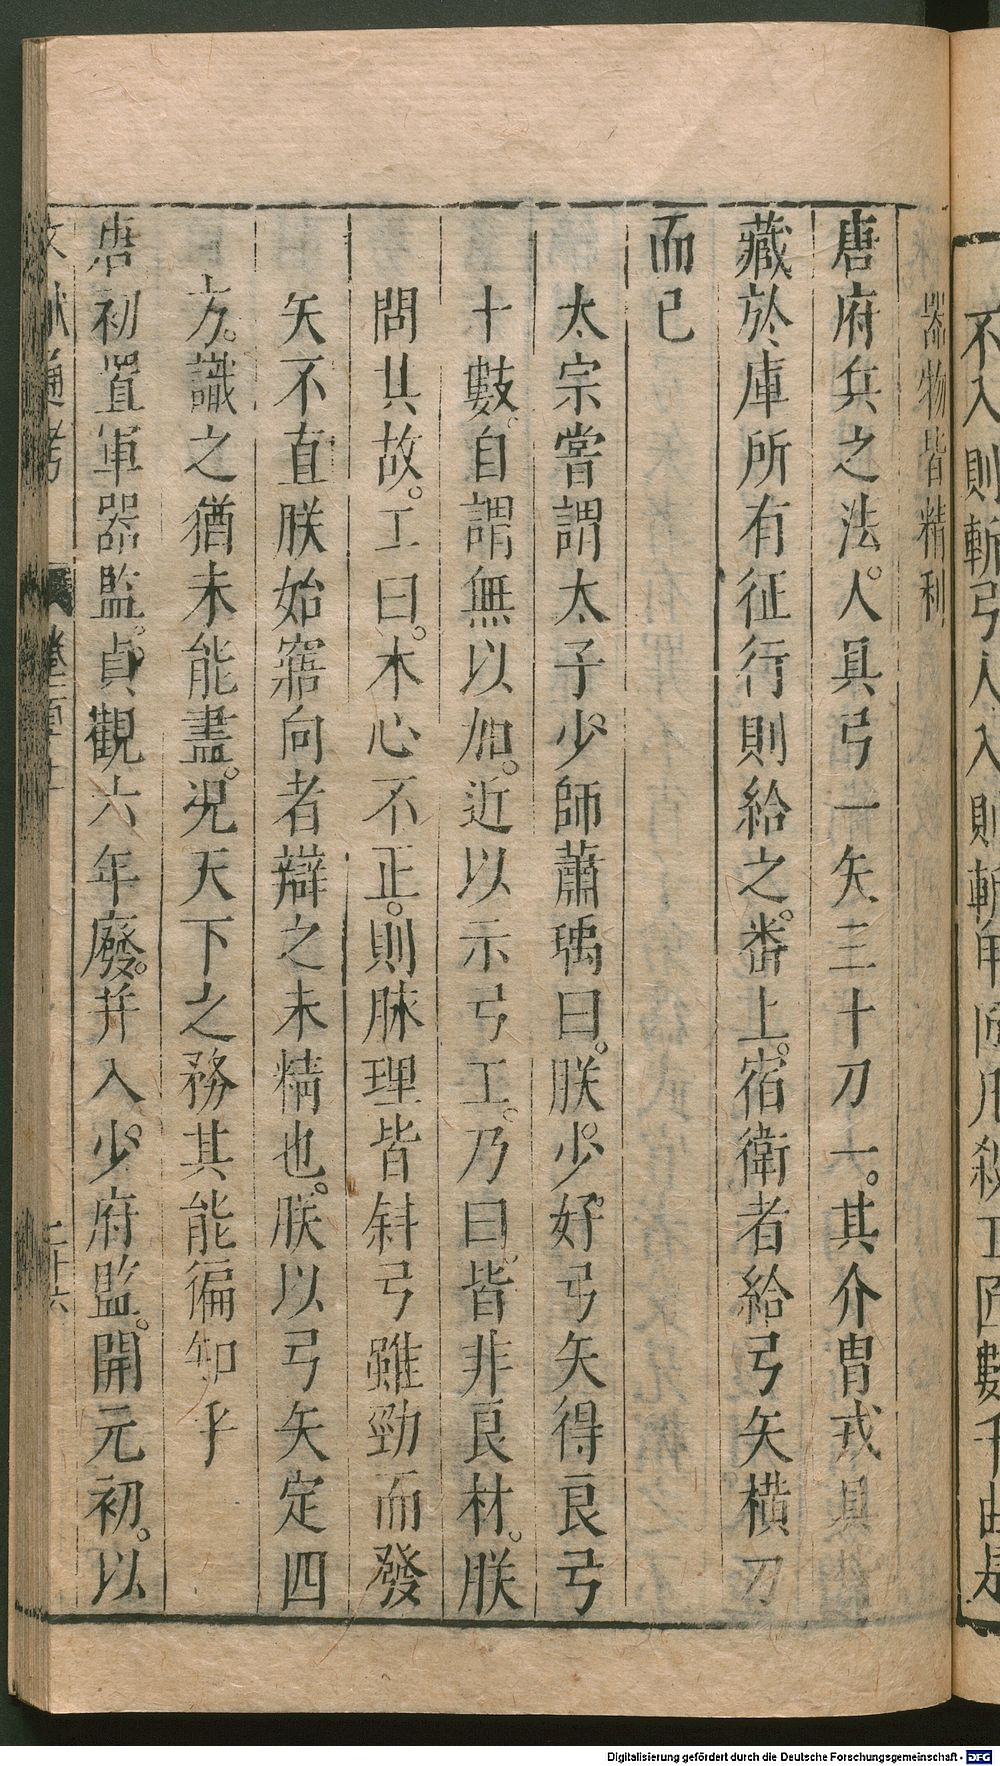 不入則斬弓人入則斬甲匠凡殺工匠數千由是
器物皆精利
唐府兵之法。人具弓一矢三十刀一。其介冑戎具皆
藏於庫所有征行則給之。番上。宿衛者給弓矢橫刀
而已
太宗嘗謂太子少師蕭瑀曰。朕少好弓矢得良弓
十數。自謂無以加。近以示弓工。乃曰。皆非良材。朕
問其故。工曰。木心不正。則脉理皆斜弓雖勁而發
矢不直朕始寤向者辯之未精也。朕以弓矢定四
方。識之猶未能盡。况天下之務其能徧知乎
唐初置軍器監。貞觀六年廢。并入少府監。開元初。以
文獻通考
二十六
Digitalisierung gefördert durch die Deutsche Forschungsgemeinschaft - DFG